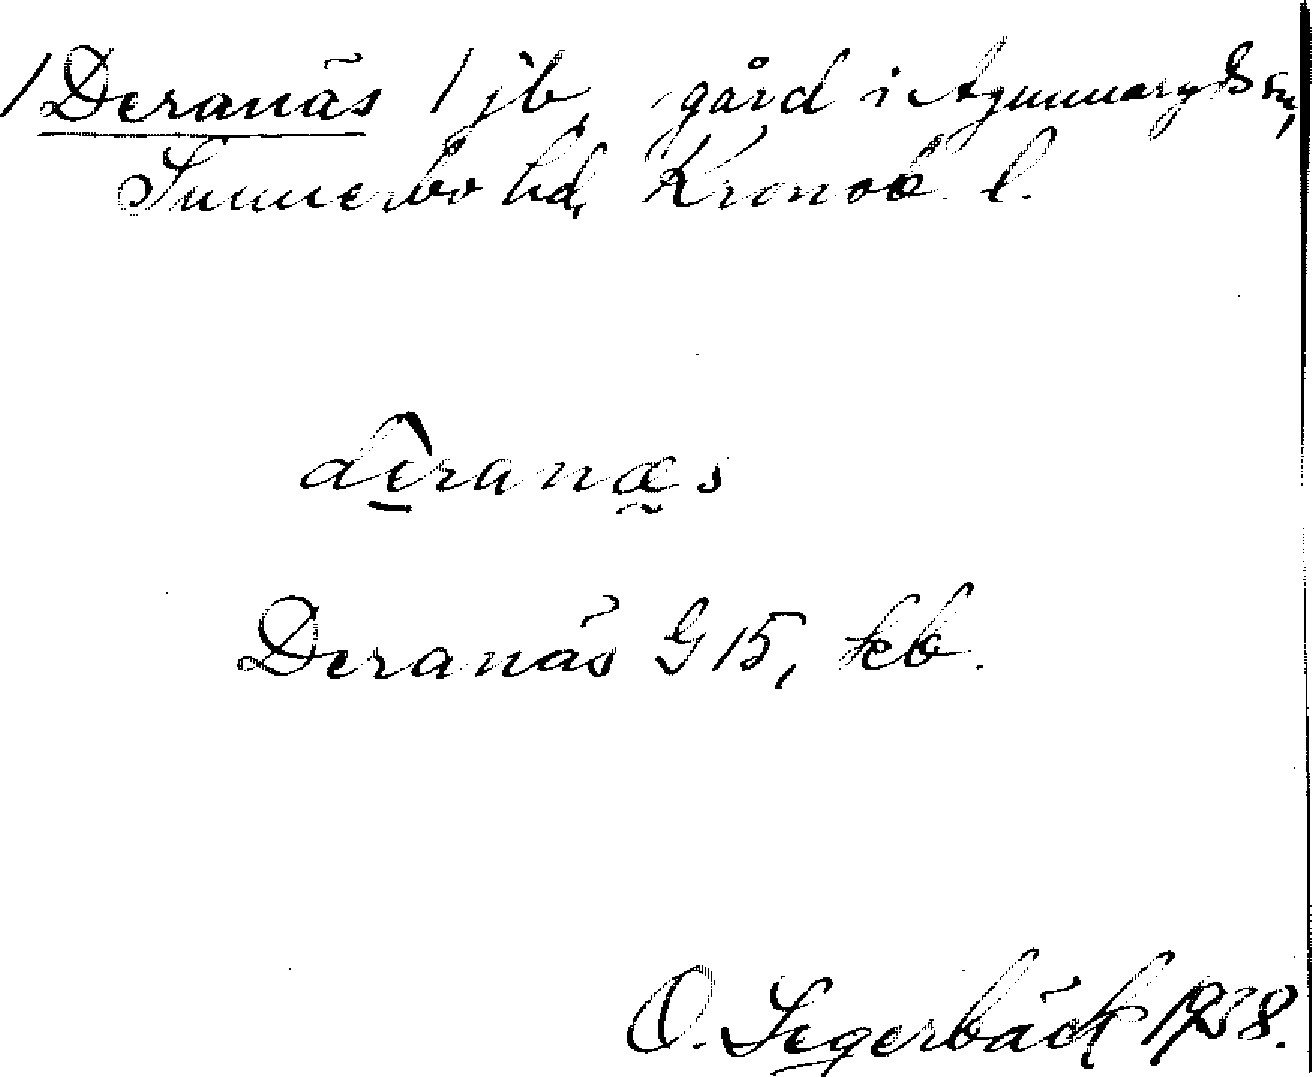 /Deranäs / jb, gård i Agunnaryds sn,
Sunnerbo hd, Kronob. l.
dèranæs
Deranäs G 15, kb.
O. Segerbäck 1938.